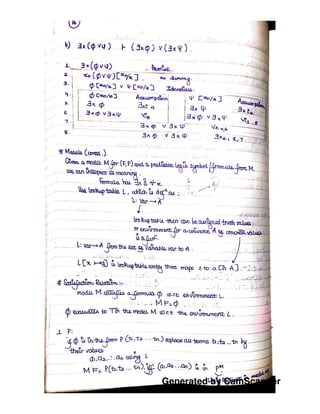 b) ∃x(φ∨ψ) ⊢ (∃xφ) ∨ (∃xψ).
1. ∃x(φ∨ψ) Premise.
2. x₀ (φ∨ψ)[x₀/x] x₀ dummy.
3. φ[x₀/x] ∨ ψ[x₀/x] Identities
4. φ[x₀/x] Assumption ψ[x₀/x] Assumption
5. ∃xφ ∃x ψ
6. ∃xφ∨∃xψ ∃xφ ∨ ∃xψ
7. ∃xφ ∨ ∃xψ
8. ∃xφ ∨ ∃xψ
* Models (contd.).
Given a model M for (F,P) and a predicate logic symbol / formula from M,
we can interpret its meaning.
Formula has ∃x & ∀x.
Use lookup table L, which is defⁿ as:
L: var → A
look up table (then can be assigned truth values)
or environment for a universe A of concrete values
is a funⁿ.
L: var→A from the set of variable var to A.
L[x ↦ a] is lookup table entry that maps x to a
* Satisfaction Relation:-
model M satisfies a formula φ w.r.t environment L
M ⊨ φ
φ evaluates to T in the model M w.r.t the environment L.
1. P:
if φ is in the form P(t₁,t₂ ... tₙ) replace all terms t₁,t₂ ... tₙ by
their values
a₁,a₂ ... aₙ using L
M ⊨ P(t₁,t₂ ... tₙ) iff (a₁,a₂ ... aₙ) is in Pᴹ
Generated by CamScanner